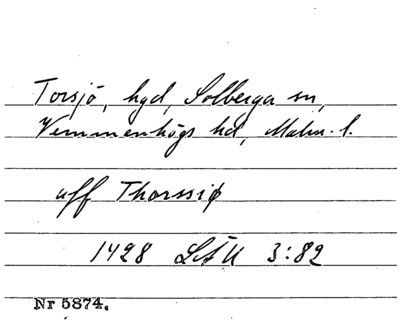 Torsjö, hgd, Solberga sn,
Vemmenhögs hd, Malm. l.
aff Thorssiø
1428 LSÅU 3:82
Nr 5874.